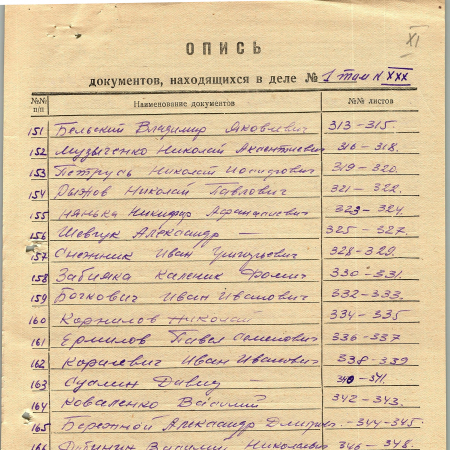 XI
ОПИСЬ
документов, находящихся в деле № 1 том № XXX
№№ п/п Наименование документов №№ листов
151 Бельский Владимир Яковлевич 313-315.
152 Музыченко Николай Аксентиевич 316-318.
153 Петрусь Николай 319-320.
154 Рыжов Николай Павлович 321-322.
155 Нянька Никифор Афанасиевич 323-324.
156 Шевчук Александр — 325-327.
157 Снежник Иван Григорьевич 328-329.
158 Забияка Каленик Фомич 330-331.
159 Бочкович Иван Иванович 332-333.
160 Корнилов Николай 334-335
161 Ермилов Павел Семенович 336-337
162 Корневич Иван Иванович 338-339
163 Давид — 340-341.
164 Коваленко Василий 342-343.
165 Бережной Александр Дмитр. -344-345.
166 Василий Николаевич 346-348.